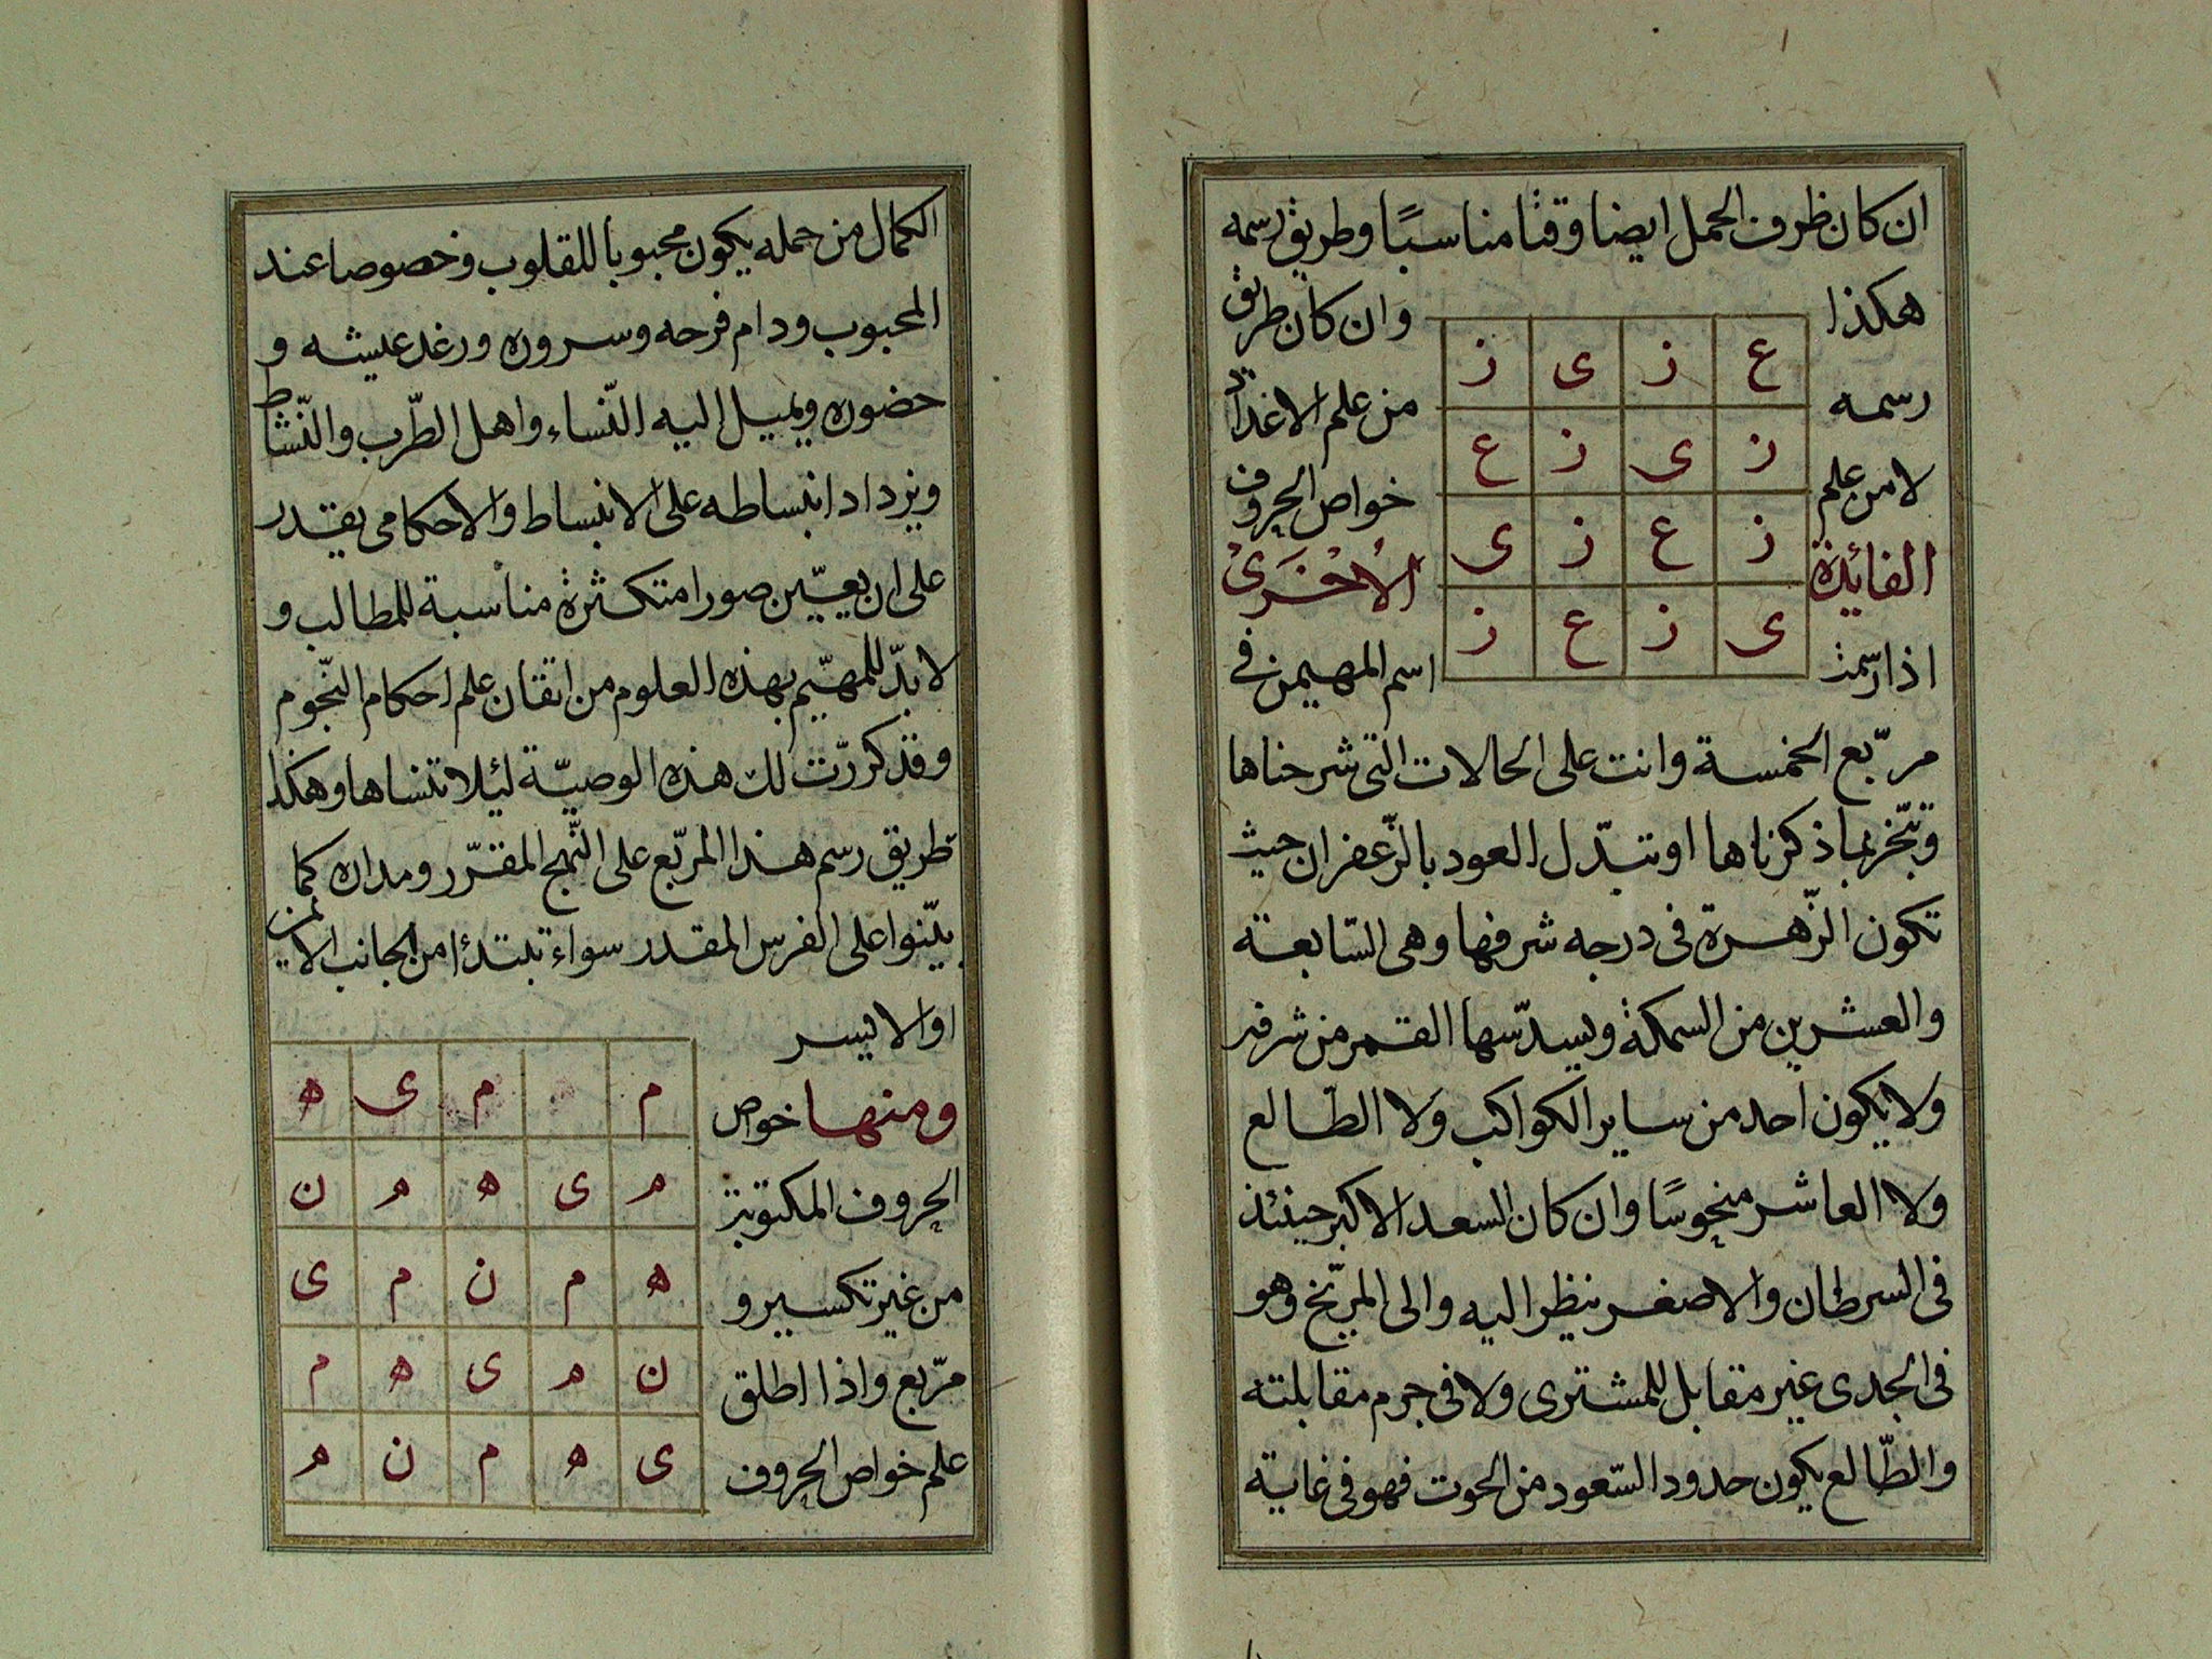 ان كان ظرف الحمل ايضا وقتا مناسبًا وطريق رسمه
هكذا
وان كان طريق
رسمه
من علم الاعداد
لا من علم
خواص الحروف
الفائدة
الاخرى
اذا رسمت
اسم المهيمن فى
ع ز ى ز
ز ى ز ع
ز ع ز ى
ى ز ع ز
مربّع الخمسة وانت على الحالات التى شرحناها
وتبخّر بما ذكرناها او تبدّل العود بالزّعفران حيث
تكون الزّهرة فى درجه شرفها وهى السّابعة
والعشرين من السمكة ويسدّسها القمر من شرفه
ولا يكون احد من ساير الكواكب ولا الطّالع
ولا العاشر منحوسًا وان كان السعد الاكبر حينئذ
فى السرطان والاصغر ينظر اليه والى المرّيخ وهو
فى الجدى غير مقابل للمشترى ولا فى جرم مقابلته
والطّالع يكون حدود السّعود من الحوت فهو فى غاية
الكمال من حمله يكون محبوبا للقلوب وخصوصا عند
المحبوب ودام فرحه وسروره ورغد عيشه و
حضوره ويميل اليه النّساء واهل الطّرب والنّشاط
ويزداد انبساطه على الانبساط والاحكامى يقدر
على ان يعيّين صورا متكثرة مناسبة للمطالب و
لا بدّ للمهيّم بهذه العلوم من اتقان علم احكام النّجوم
وقد كررّت لك هذه الوصيّة لئيلا تنساها وهكذا
طريق رسم هذا المربّع على النّهج المقرّر ومداره كما
بيّنوا على الفرس المقدر سواء تبتدئ من الجانب الايمن
او الايسر
ومنها خواص
الحروف المكتوبة
من غير تكسير و
مربّع واذا اطلق
علم خواص الحروف
م م ى ه
م ى ه م ن
ه م ن م ى
ن م ى ه م
ى ه م ن م